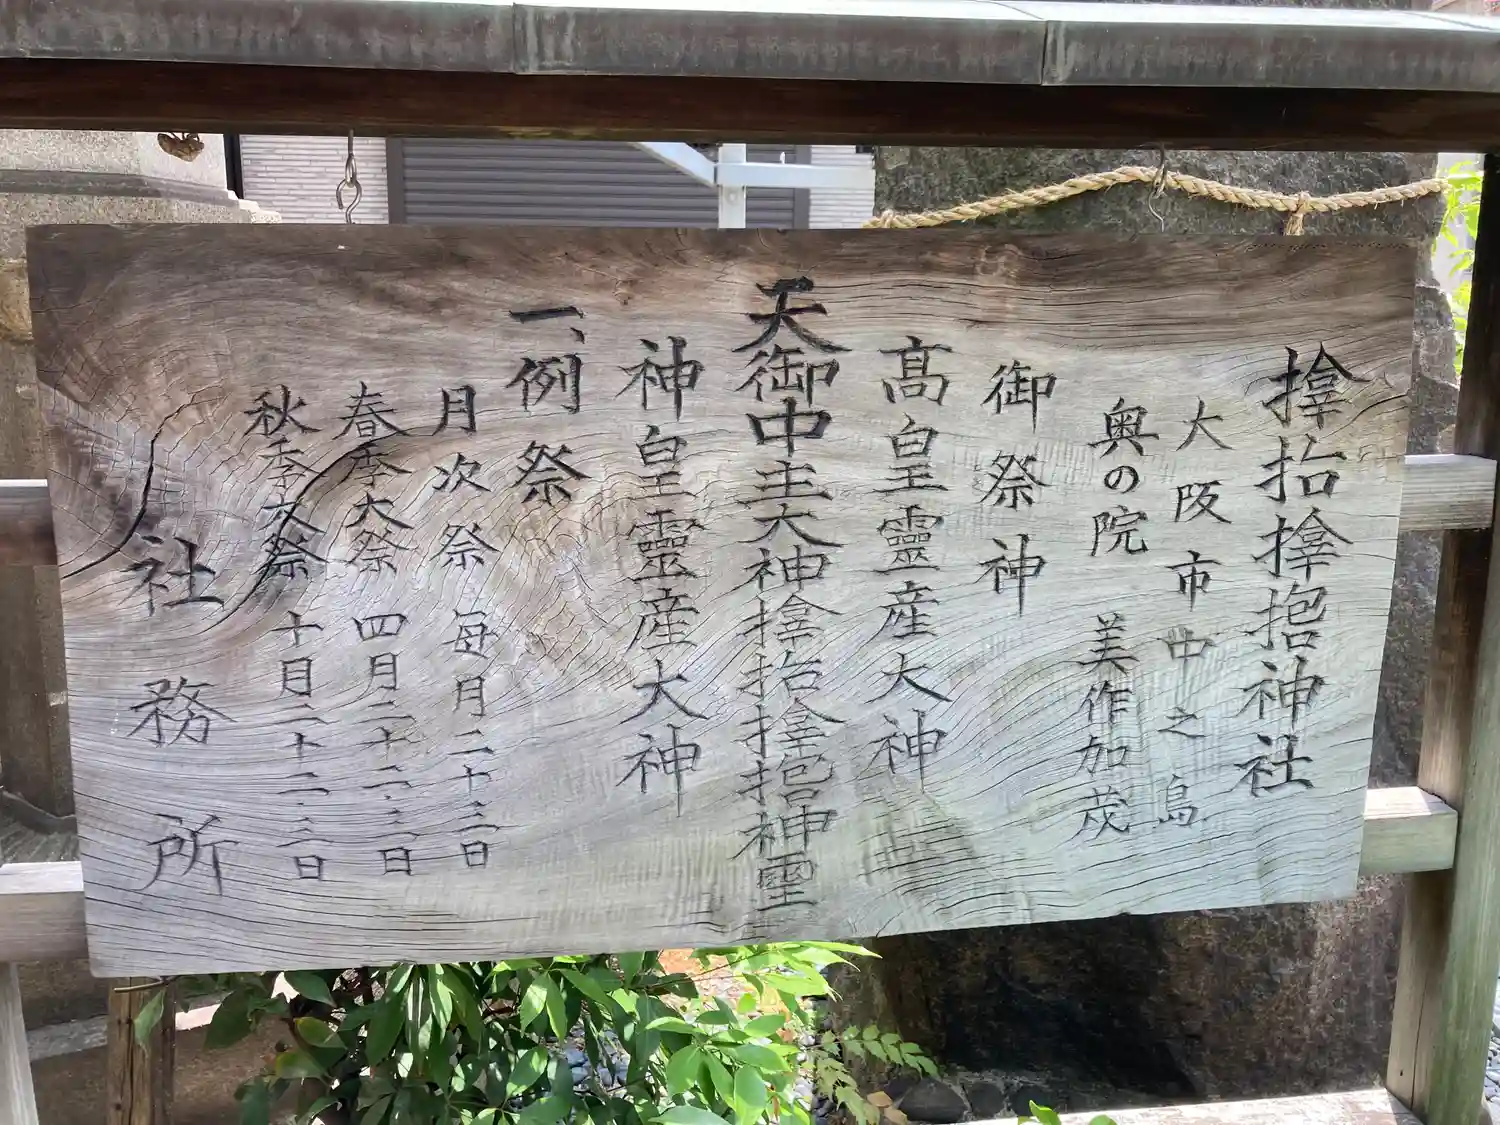 抬神社
大阪市中之島
奥の院 美作加茂
御祭神
高皇靈産大神
天御中主大神抬神霊
神皇靈産大神
一、例祭
月次祭 毎月二十三日
春季大祭 四月二十二・三日
秋季大祭 十月二十二・三日
社務所